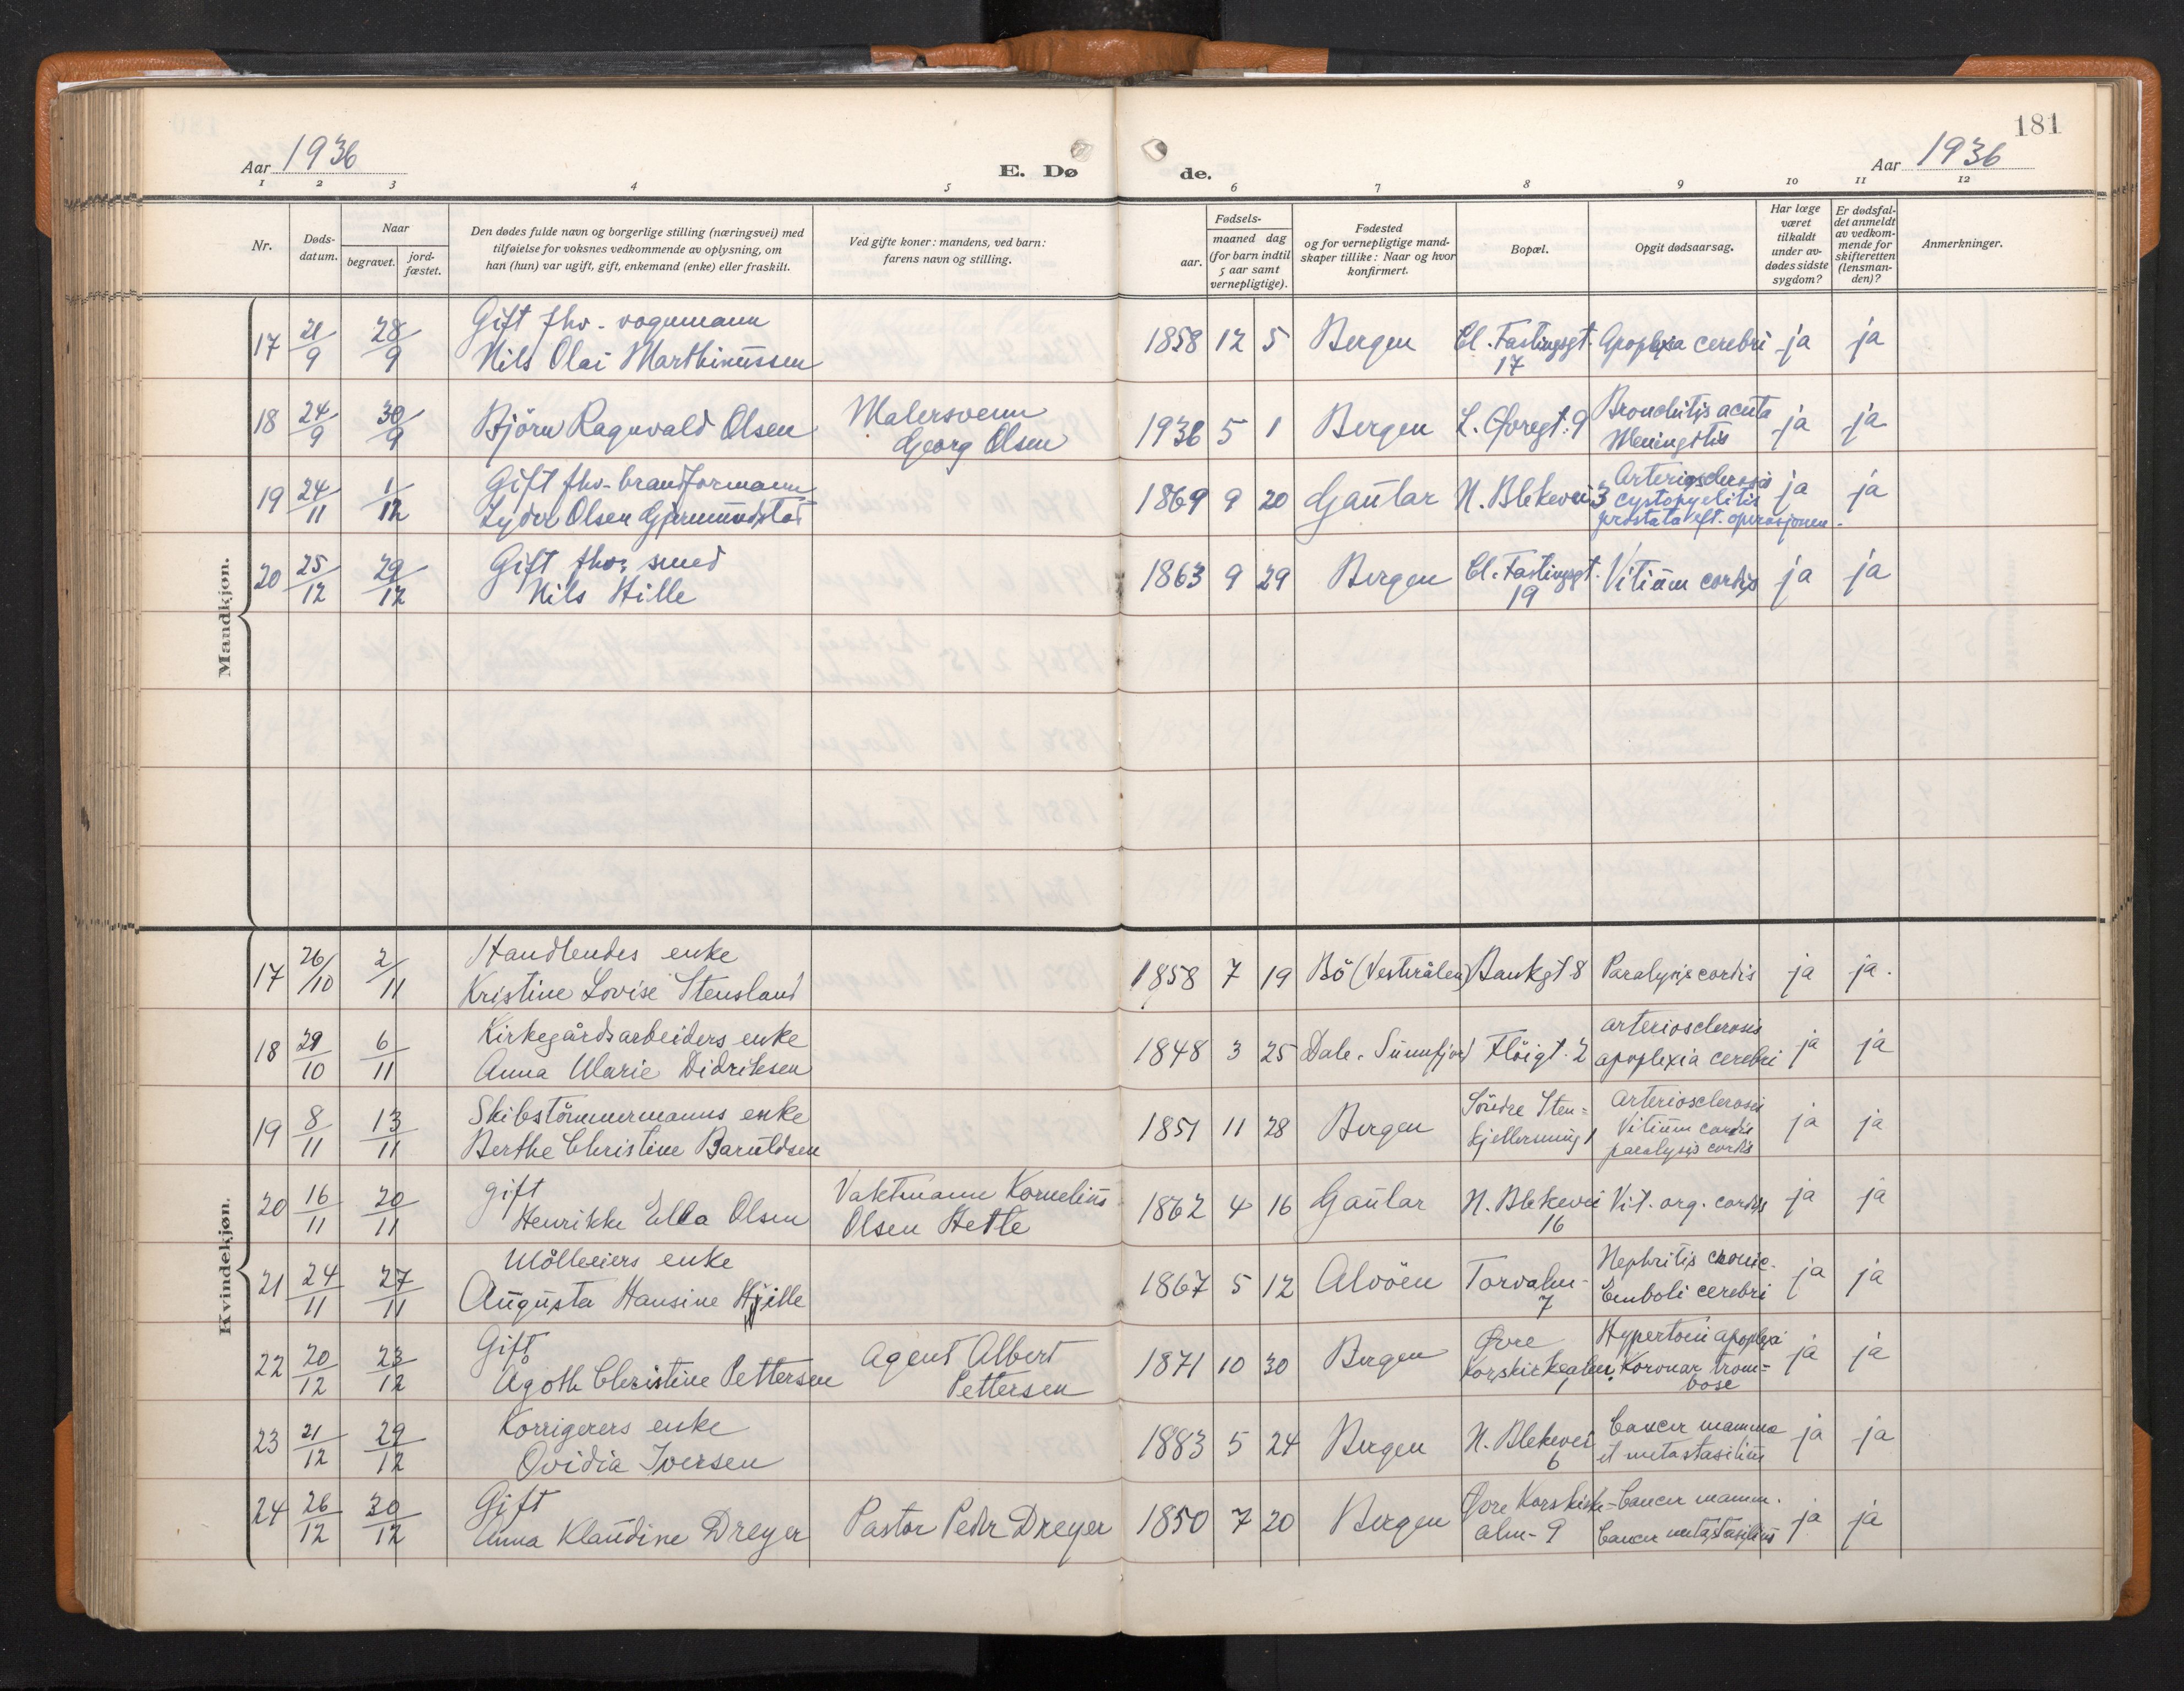 181
Aar 1936
E. Dø
de.
Aar 1936
1 2 3 4 5 6 7 8 9 10 11 12
Nr.
Døds-
datum.
Naar
begravet.
jord-
fæstet.
Den dødes fulde navn og borgerlige stilling (næringsvei) med
tilføielse for voksnes vedkommende av oplysning, om
han (hun) var ugift, gift, enkemand (enke) eller fraskilt.
Ved gifte koner: mandens, ved barn:
farens navn og stilling.
Fødsels-
aar.
maaned dag
(for barn indtil
5 aar samt
vernepligtige).
Fødested
og for vernepligtige mand-
skaper tillike: Naar og hvor
konfirmert.
Bopæl.
Opgit dødsaarsag.
Har læge
været
tilkaldt
under av-
dødes sidste
sygdom?
Er dødsfal-
det anmeldt
av vedkom-
mende for
skifteretten
(lensman-
den)?
Anmerkninger.
Mandkjøn.
17 21/9 28/9 Gift fhv. vognmann
Nils Olai Marthinussen
1858 12 5 Bergen Cl. Fastingsgt. 17 Apoplexia cerebri ja ja
18 24/9 30/9 Björn Ragnvald Olsen
Malersvenn
Georg Olsen
1936 5 1 Bergen L. Øvregt. 9 Bronchitis acuta
Meningitis ja ja
19 24/11 1/12 Gift fhv. brandformann
Lyder Olsen Gjermundstad
1869 9 20 Gaular N. Blekevei 3 Arteriosclerosis
cystopyelitis
prostata eft. operasjonen. ja ja
20 25/12 29/12 Gift fhv. smed
Nils Hille
1863 9 29 Bergen Cl. Fastingsgt. 19 Vitium cordis ja ja
Kvindekjøn.
17 26/10 2/11 Handlendes enke
Kristine Lovise Stensland
1858 7 19 Bö (Vesterålen) Bankgt 8 Paralysis cordis ja ja.
18 29/10 6/11 Kirkegårdsarbeiders enke
Anna Marie Didriksen
1848 3 25 Dale. Sunnfjord Flöigt. 2 arteriosclerosis
apoplexia cerebri ja ja
19 8/11 13/11 Skibstömmermanns enke
Berthe Christine Baruldsen
1851 11 28 Bergen Söndre Sten-
kjellersmug 1 Arteriosclerosis
Vitium cordis
paralysis cordis ja ja
20 16/11 20/11 gift
Henrikke Ella Olsen
Vaktmann Kornelius
Olsen Hetle
1862 4 16 Gaular N. Blekevei 16 Vit. org. cordis ja ja
21 24/11 27/11 Mölleeiers enke
Augusta Hansine Hjille
1867 5 12 Alvöen Torvalm. 7 Nephritis cronic.
Emboli cerebri ja ja
22 20/12 23/12 Gift
Agoth Christine Pettersen
Agent Albert
Pettersen
1871 10 30 Bergen Øvre
Korskirkealm. 1 Hypertoni apoplexi
Koronar trom-
bose ja ja
23 21/12 29/12 Korrigerers enke
Ovidia Iversen
1883 5 24 Bergen N. Blekevei 6 Cancer mamma
et metastasibus ja ja
24 26/12 30/12 Gift
Anna Klaudine Dreyer
Pastor Peder Dreyer
1850 7 20 Bergen Øvre Korskirke-
alm. 9 Cancer mamm.
Cancer metastasibus ja ja